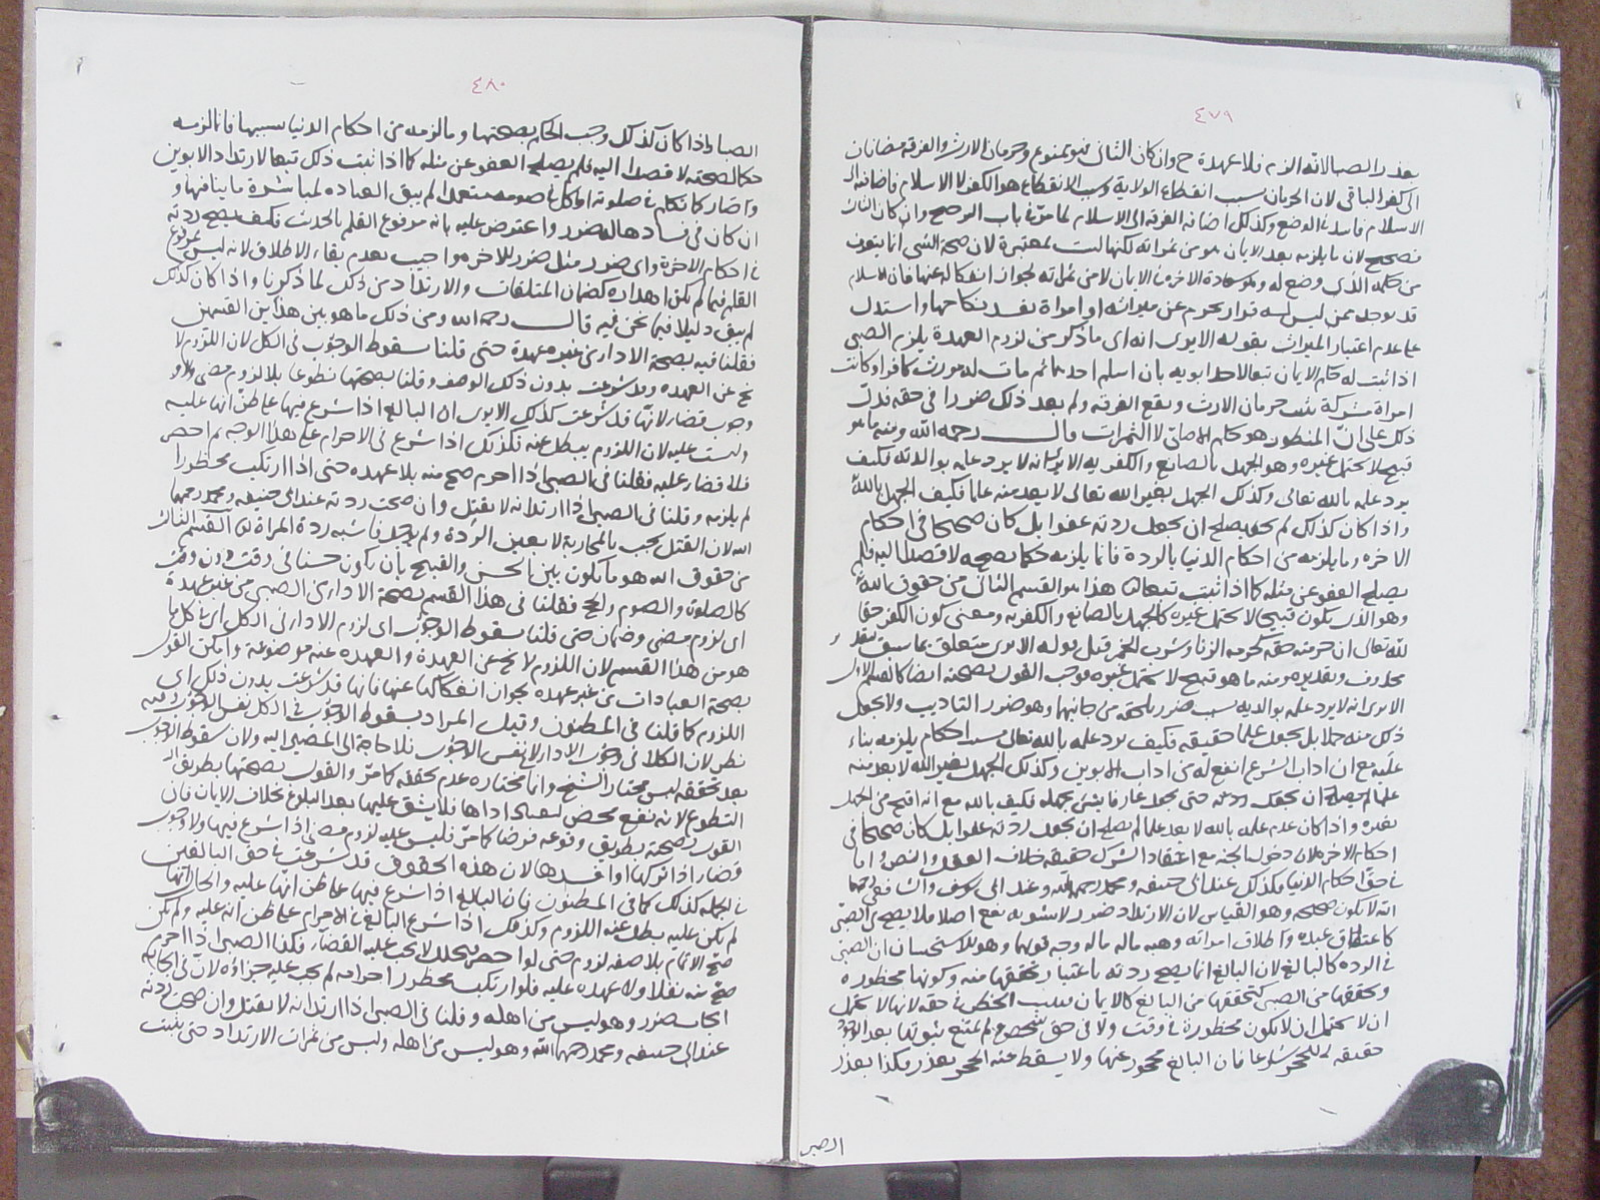 ٤٧٩
الى كفر الباقى لان الحرمان بسبب انقطاع الولاية وسبب الانقطاع هو الكفر لا الاسلام فاضافته الى
الاسلام فاسد فى الوضع وكذلك اضافة الفرقة الى الاسلام لما مر فى باب الوضع وان كان الثالث
فصحيح لان ما يلزمه بعد الايمان هو من ثمراته لكنها ليست بمعتبرة لان صحة الشئ انما يتعرف
من حكمه الذى وضع له وهو سعادة الاخرة فى الايمان لا من ثمراته لجواز انفكاكه عنها فان الاسلام
قد يوجد ممن ليس له قرابة يحرم عن ميراثه او امراة يفسد نكاحها واستدل
على عدم اعتبار الميراث بقوله الا يرى انه اى ما ذكر من لزوم العهدة يلزم الصبى
اذا ثبت له حكم الايمان تبعا لاحد ابويه بان اسلم احدهما ثم مات له مورث كافر او كانت
امراة مشركة يثبت حرمان الارث ويقع الفرقة ولم يعد ذلك ضررا فى حقه فدل
ذلك على ان المنظور هو الحكم الاصلى لا الثمرات قال رحمه الله ومنه ما هو
قبيح لا يحتمل غيره وهو الجهل بالصانع والكفر به الا يرى انه لا يرد علمه بوالديه فكيف
يرد علمه بالله تعالى وكذلك الجهل بغير الله تعالى لا يعد منه علما فكيف الجهل بالله
واذا كان كذلك لم يصلح ان يجعل ردته عفوا بل كان صحيحا فى احكام
الاخرة وما يلزمه من احكام الدنيا بالردة فانما يلزمه حكما لصحته لا قصدا اليه فلم
يصلح العفو عن مثله كما اذا ثبت تبعا هذا هو القسم الثانى من حقوق الله
وهو الذى يكون قبيحا لا يحتمل غيره كالجهل بالصانع والكفر به ومعنى كون الكفر حقا
لله تعالى ان حرمته حقه كحرمة الزنا وشرب الخمر قيل قوله الا يرى متعلق بما سبق
الا يرى انه لا يرد علمه بوالديه بسبب ضرر يلحقه من جانبهما وهو ضرر التاديب ولا يجعل
ذلك منه جهلا بل يجعل علما حقيقة فكيف يرد علمه بالله تعالى بسبب احكام يلزمه بناء
عليه مع ان اداب الشرع انفع له من اداب الابوين وكذلك الجهل بغير الله لا يعد منه
بغيره واذا كان عدم علمه بالله لا يعد علما لم يصلح ان يجعل ردته عفوا بل كان صحيحا فى
فى حق احكام الدنيا فكذلك عند ابى حنيفة ومحمد رحمهما الله وعند ابى يوسف والشافعى
انه لا يكون صحيحة وهو القياس لان الارتداد ضرر لا يشوبه نفع اصلا فلا يصح من الصبى
كاعتاق عبده وطلاق امراته وهبة ماله وجه قولهما وهو الاستحسان ان الصبى
فى الردة كالبالغ لان البالغ انما يصح ردته باعتبار تحققها منه وكونها محظورة
وتحققها من الصبى كتحققها من البالغ كالايمان فى حقه لانها لا تحتمل
ان لا يكون محظورة فى وقت ولا فى حق شخص
حقيقة للحجر شرعا فان البالغ محجور عنها ولا يسقط عنه الحجر بعذر فكذا بعذر
الصبى
٤٨٠
الصبا واذا كان كذلك وجب الحكم بصحتها وما لزمه من احكام الدنيا بسببها فانما لزمه
حكما لصحته لا قصدا اليه فلم يصلح العفو عن مثله كما اذا ثبت ذلك تبعا لارتداد الابوين
ان كان فى فسادها ضرر واعترض عليه بانه مرفوع القلم بالحديث فكيف يصح ردته
فى احكام الاخرة واى ضرر مثل ضرر الاخرة واجيب بعدم بقاء الاطلاق لانه ليس بمرفوع
القلم فيما لم يكن اهداره كضمان المتلفات والارتداد من ذلك لما ذكرنا واذا كان كذلك
لم يبق دليلا فيما نحن فيه قال رحمه الله ومن ذلك ما هو بين هذين القسمين
فقلنا فيه بصحة الاداء من غير عهدة حتى قلنا بسقوط الوجوب فى الكل لان اللزوم لا
يخ عن العهدة وقد شرعت بدون ذلك الوصف وقلنا بصحتها تطوعا بلا لزوم مضى ولا
وجوب قضاء لانها قد شرعت كذلك الا يرى ان البالغ اذا شرع فيها على ظن انها عليه
وليست عليه ان اللزوم يبطل عنه فكذلك اذا شرع فى الاحرام على هذا الوجه ثم احصر
فلا قضاء عليه فقلنا فى الصبى اذا احرم صح منه بلا عهدة حتى اذا ارتكب محظورا
لم يلزمه وقلنا فى الصبى اذا ارتد انه لا يقتل وان صحت ردته عند ابى حنيفة ومحمد رحمهما
الله لان القتل يجب بالمحاربة لا بعين الردة ولم يوجد فاشبه ردة المراة القسم الثالث
من حقوق الله هو ما يكون بين الحسن والقبيح بان يكون حسنا فى وقت دون وقت
كالصلوة والصوم والحج فقلنا فى هذا القسم بصحة الاداء من الصبى من غير عهدة
اى لزوم مضى وضمان حتى قلنا بسقوط الوجوب اى لزوم الاداء فى الكل اى فى كل ما
هو من هذا القسم لان اللزوم لا يخ عن العهدة والعهدة عنه موضوعة وامكن القول
بصحة العبادات من غير عهدة بجواز انفكاكها عنها فانها قد شرعت بدون ذلك اى
اللزوم كما قلنا فى المظنون وقيل المراد بسقوط الوجوب فى الكل نفس الوجوب وفيه
نظر لان الكلام فى وجوب الاداء لا فى نفس الوجوب فلا حاجة الى المصير اليه ولان سقوط الوجوب
بعد تحققه ليس مختار الشيخ وانما مختاره عدم تحققه كما مر والقول بصحتها بطريق
التطوع لانه نفع محض لاعتياد اداها فلا يشق عليها بعد البلوغ بخلاف الايمان فان
القول بصحته بطريق وقوعه فرضا كما مر فليس عليه لزوم مضى اذا شرع فيها ولا وجوب
قضاء اذا تركها او افسدها لان هذه الحقوق قد شرعت فى حق البالغين
فى الجملة كذلك كما فى المظنون فان البالغ اذا شرع فيها على ظن انها عليه والحال انها
لم تكن عليه بطل عنه اللزوم وكذلك اذا شرع البالغ فى الاحرام على ظن انه عليه ولم يكن
صح الاتمام بلا صفة لزوم حتى لو احصر فتحلل لا يجب عليه القضاء فكذا الصبى اذا احرم
صح منه نفلا ولا عهدة عليه فلو ارتكب محظور احرامه لم يجب عليه جزاؤه لان فى ايجابه
ايجاب ضرر وهو ليس من اهله وقلنا فى الصبى اذا ارتد انه لا يقتل وان صحت ردته
عند ابى حنيفة ومحمد رحمهما الله وهو ليس من اهله وليس من ثمرات الارتداد حتى يثبت